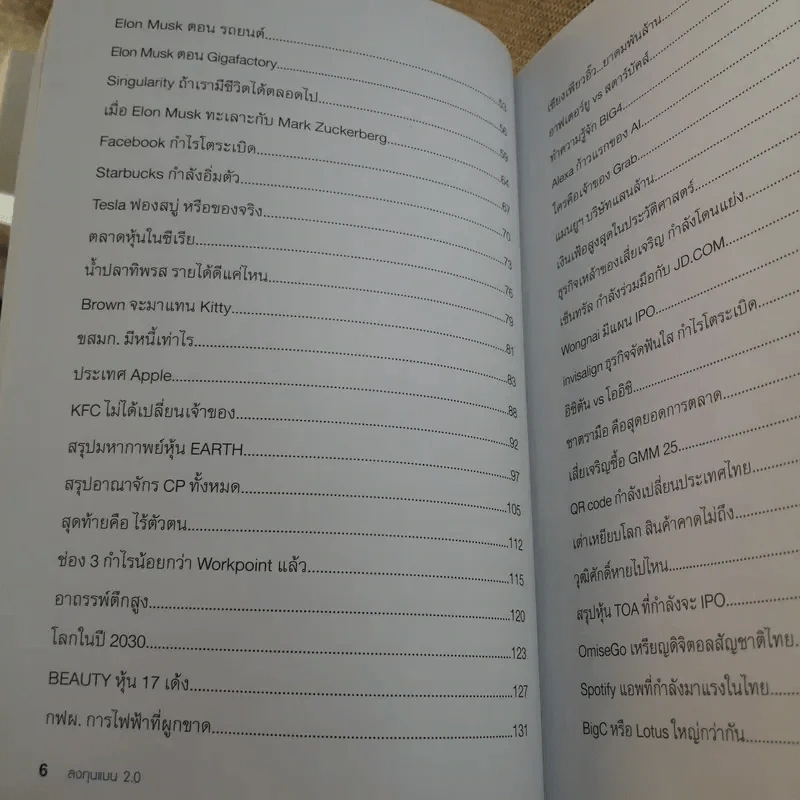 Elon Musk ตอน รถยนต์ 53
Elon Musk ตอน Gigafactory 56
Singularity ถ้าเรามีชีวิตได้ตลอดไป 59
เมื่อ Elon Musk ทะเลาะกับ Mark Zuckerberg 64
Facebook กำไรโตระเบิด 67
Starbucks กำลังอิ่มตัว 70
Tesla ฟองสบู่ หรือของจริง 73
ตลาดหุ้นในซีเรีย 76
น้ำปลาทิพรส รายได้ดีแค่ไหน 79
Brown จะมาแทน Kitty 81
ขสมก. มีหนี้เท่าไร 83
ประเทศ Apple 88
KFC ไม่ได้เปลี่ยนเจ้าของ 92
สรุปมหากาพย์หุ้น EARTH 97
สรุปอาณาจักร CP ทั้งหมด 105
สุดท้ายคือ ไร้ตัวตน 112
ช่อง 3 กำไรน้อยกว่า Workpoint แล้ว 115
อาถรรพ์ตึกสูง 120
โลกในปี 2030 123
BEAUTY หุ้น 17 เด้ง 127
กฟผ. การไฟฟ้าที่ผูกขาด 131
6 ลงทุนแมน 2.0
เซียงเพียวอิ๊ว...ยาดมพันล้าน
อาฟเตอร์ยู vs สตาร์บัคส์
ทำความรู้จัก BIG4
Alexa ก้าวแรกของ AI
ใครคือเจ้าของ Grab
แมนยูฯ บริษัทแสนล้าน
เงินเฟ้อสูงสุดในประวัติศาสตร์
ธุรกิจเหล้าของเสี่ยเจริญ กำลังโดนแย่ง
เซ็นทรัล กำลังร่วมมือกับ JD.COM
Wongnai มีแผน IPO
invisalign ธุรกิจจัดฟันใส กำไรโตระเบิด
อิชิตัน vs โออิชิ
ชาตรามือ คือสุดยอดการตลาด
เสี่ยเจริญซื้อ GMM 25
QR code กำลังเปลี่ยนประเทศไทย
เต่าเหยียบโลก สินค้าคาดไม่ถึง
วุฒิศักดิ์หายไปไหน
สรุปหุ้น TOA ที่กำลังจะ IPO
OmiseGo เหรียญดิจิตอลสัญชาติไทย
Spotify แอพที่กำลังมาแรงในไทย
BigC หรือ Lotus ใหญ่กว่ากัน